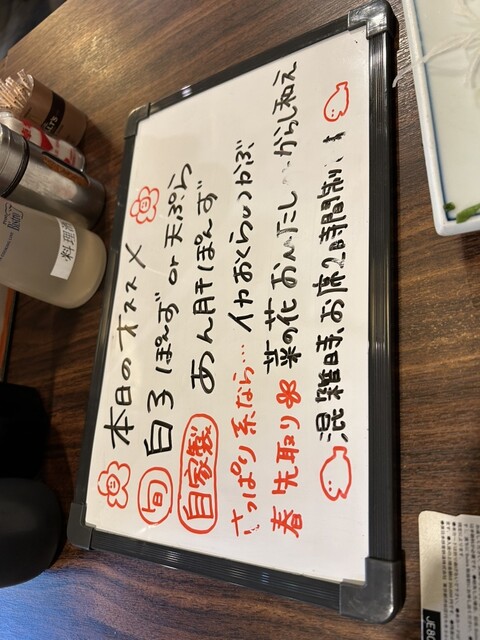 本日のオススメ
旬 白子 ぽんず or 天ぷら
自家製 あん肝ぽんず
さっぱり系なら… イカおくらいつかぶ
春先取り 菜の花 おひたし からし和え
混雑時、お席2時間制
料理酒